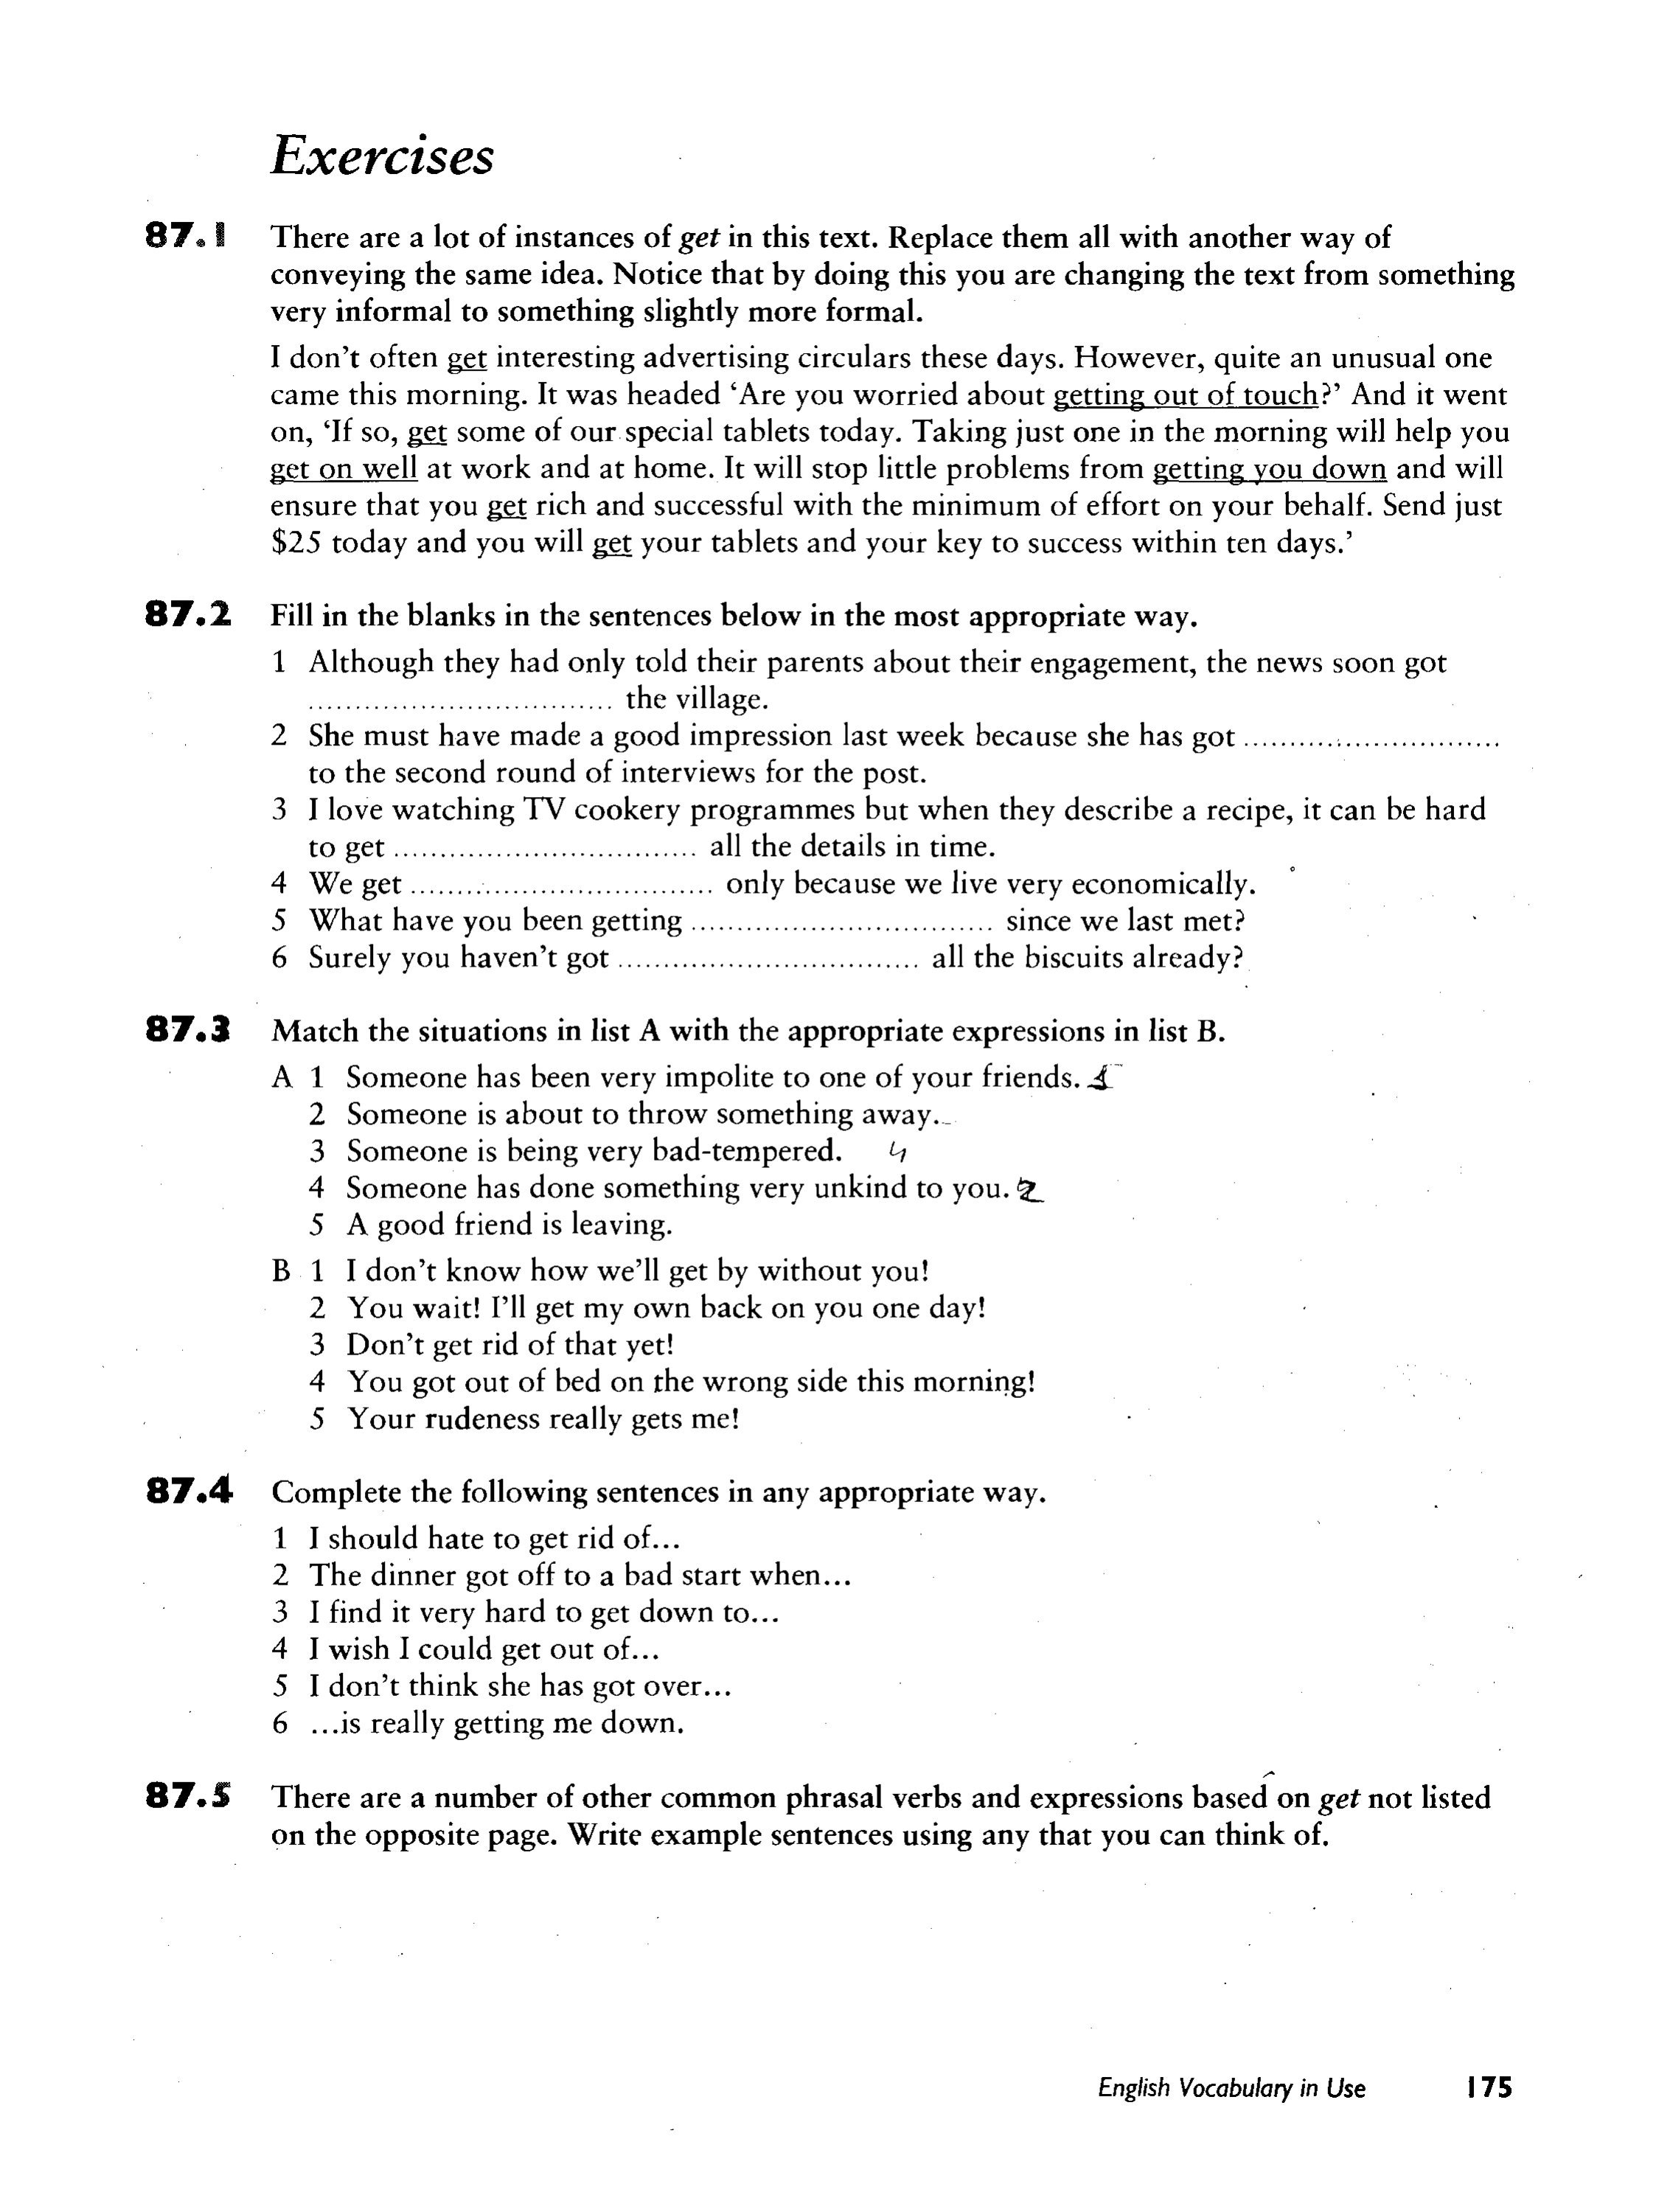 Exercises
87.1 There are a lot of instances of get in this text. Replace them all with another way of
conveying the same idea. Notice that by doing this you are changing the text from something
very informal to something slightly more formal.
I don't often get interesting advertising circulars these days. However, quite an unusual one
came this morning. It was headed 'Are you worried about getting out of touch?' And it went
on, 'If so, get some of our special tablets today. Taking just one in the morning will help you
get on well at work and at home. It will stop little problems from getting you down and will
ensure that you get rich and successful with the minimum of effort on your behalf. Send just
$25 today and you will get your tablets and your key to success within ten days.'
87.2 Fill in the blanks in the sentences below in the most appropriate way.
1 Although they had only told their parents about their engagement, the news soon got
................................ the village.
2 She must have made a good impression last week because she has got ............................
to the second round of interviews for the post.
3 I love watching TV cookery programmes but when they describe a recipe, it can be hard
to get ................................ all the details in time.
4 We get ................................ only because we live very economically.
5 What have you been getting ................................ since we last met?
6 Surely you haven't got ................................ all the biscuits already?
87.3 Match the situations in list A with the appropriate expressions in list B.
A 1 Someone has been very impolite to one of your friends.
2 Someone is about to throw something away.
3 Someone is being very bad-tempered. 4
4 Someone has done something very unkind to you. 2
5 A good friend is leaving.
B 1 I don't know how we'll get by without you!
2 You wait! I'll get my own back on you one day!
3 Don't get rid of that yet!
4 You got out of bed on the wrong side this morning!
5 Your rudeness really gets me!
87.4 Complete the following sentences in any appropriate way.
1 I should hate to get rid of...
2 The dinner got off to a bad start when...
3 I find it very hard to get down to...
4 I wish I could get out of...
5 I don't think she has got over...
6 ...is really getting me down.
87.5 There are a number of other common phrasal verbs and expressions based on get not listed
on the opposite page. Write example sentences using any that you can think of.
English Vocabulary in Use 175